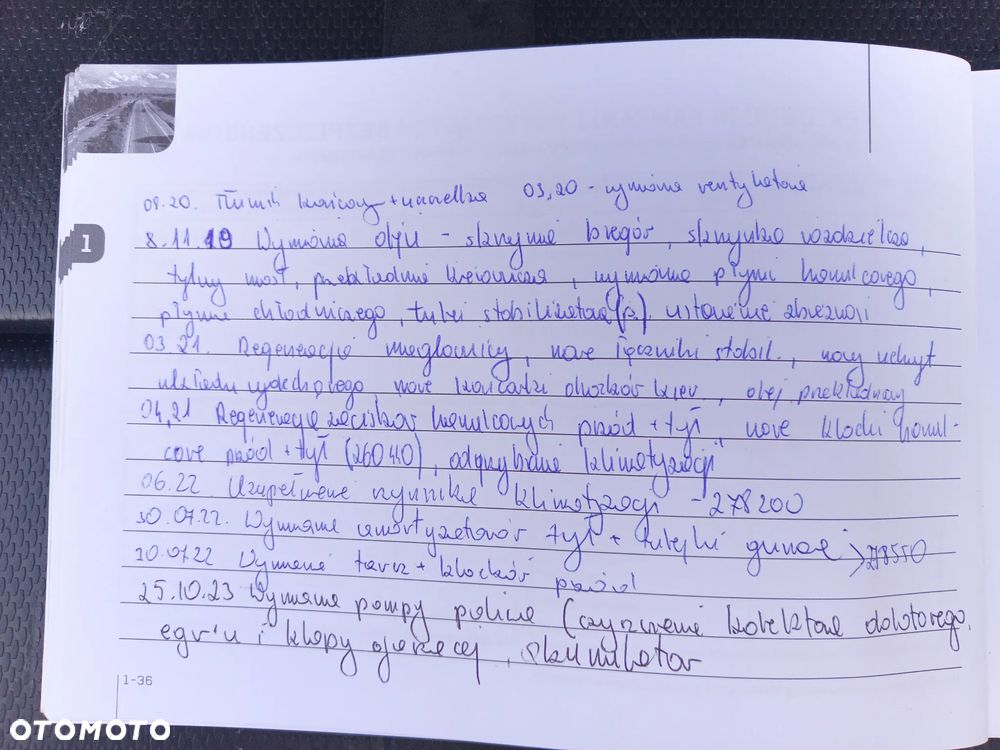 08.20. Tłumik końcowy + uszczelka 03,20 - wymiana wentylatora
8.11.19 Wymiana oleju - skrzynia biegów, skrzynka rozdzielcza,
tylny most, przekładnia kierownicza, wymiana płynu hamulcowego,
płynu chłodniczego, tulei stabilizatora (p.) ustawienie zbieżności
03.21. Regeneracja maglownicy, nowe łączniki stabil., nowy uchwyt
układu wydechowego nowe końcówki drążków kier., olej przekładniowy
04,21 Regeneracja zacisków hamulcowych przód + tył nowe klocki hamul-
cowe przód + tył (260440), odgrzybianie klimatyzacji
06.22. Uzupełnienie czynnika klimatyzacji - 278200
30.07.22. Wymiana amortyzatorów tył + tulejki gumowe > 278550
30.07.22 Wymiana tarcz + klocków przód
25.10.23 Wymiana pompy paliwa (czyszczenie kolektora dolotowego,
egr'u i klapy gaszącej, akumulator
1
1-36
OTOMOTO